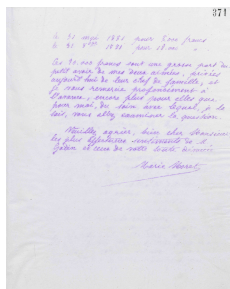 371
le 31 mai 1891 pour 8.000 francs
le 31 1891 pour
Ces francs sont une grosse part du
petit avoir de mes deux nièces, privées
de leur chef de famille, et
je vous remercie profondément à
l'avance, encore plus pour elles que
pour moi, du soin avec lequel, je le
sais, vous allez examiner la question.
Veuillez agréer, bien cher Monsieur
les plus affectueux sentiments de
et ceux de votre toute
Marie Moret